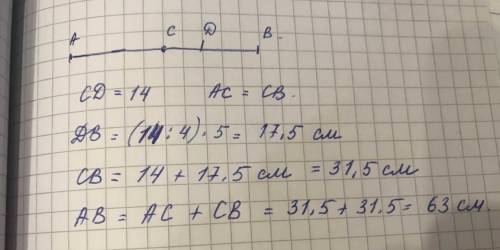 A C D B.
CD = 14 AC = CB.
DB = (14 : 4) · 5 = 17,5 см
CB = 14 + 17,5 см = 31,5 см
AB = AC + CB = 31,5 + 31.5 = 63 см.